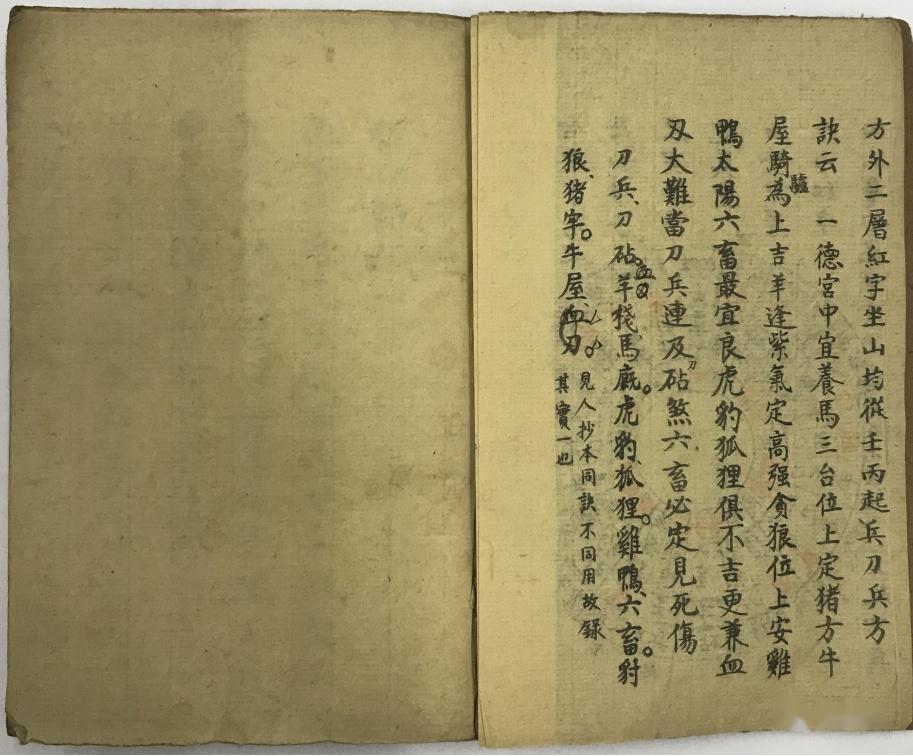 方外二層紅字坐山均從壬丙起兵刀兵方
訣云 一德宮中宜養馬三台位上定猪方牛
屋騎為上吉羊逢紫氣定高强貪狼位上安雞
驢
鴨太陽六畜最宜良虎豹狐狸俱不吉更兼血
刃大難當刀兵連及砧煞六畜必定見死傷
刀
刀兵、刀砧。羊棧、馬廐。虎豹、狐狸。雞鴨、六畜。豺
血刃
狼、猪牢。牛屋、血刃。
見人抄本同訣不同用故錄
其實一也